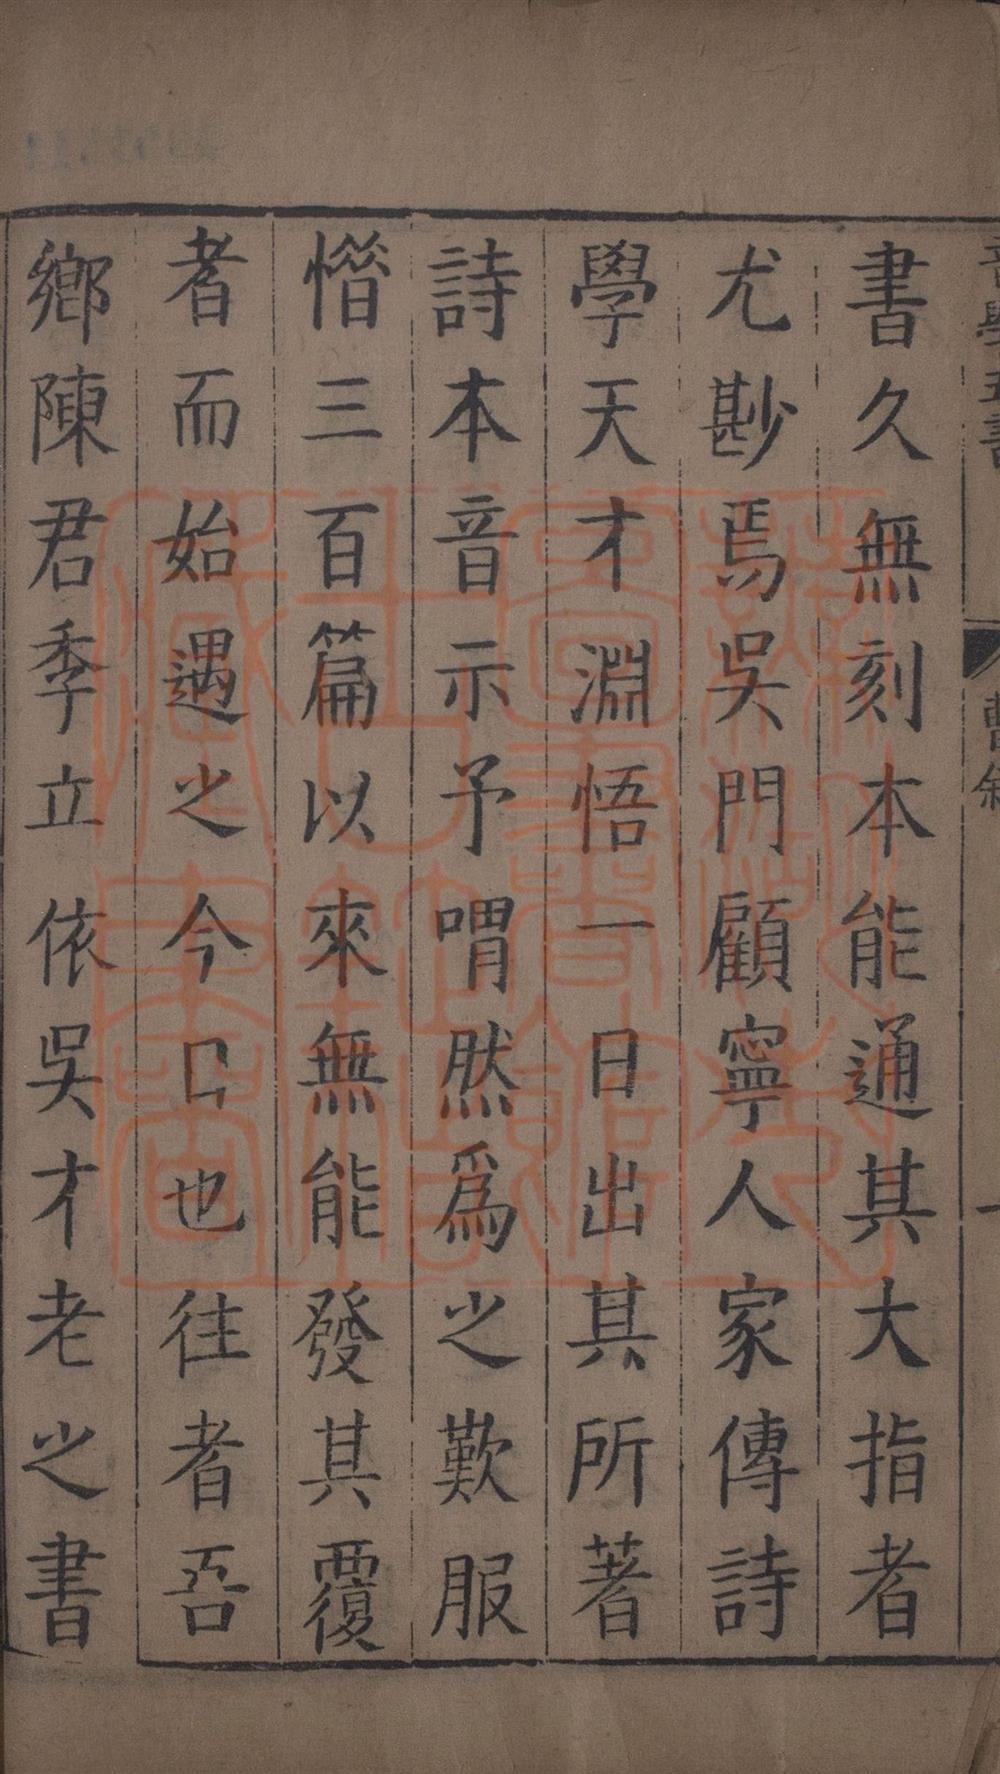 音學五書 曹敘 一
書久無刻本能通其大指者
尤尠焉吳門顧寧人家傳詩
學天才淵悟一日出其所著
詩本音示予喟然爲之歎服
惜三百篇以來無能發其覆
者而始遇之今日也往者吾
鄉陳君季立依吳才老之書